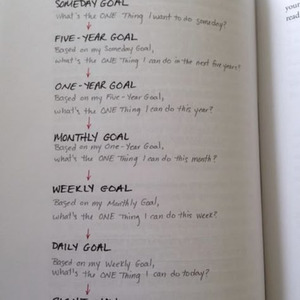 SOMEDAY GOAL
What's the ONE Thing I want to do someday?
FIVE-YEAR GOAL
Based on my Someday Goal,
what's the ONE Thing I can do in the next five years?
ONE-YEAR GOAL
Based on my Five-Year Goal,
what's the ONE Thing I can do this year?
MONTHLY GOAL
Based on my One-Year Goal,
what's the ONE Thing I can do this month?
WEEKLY GOAL
Based on my Monthly Goal,
what's the ONE Thing I can do this week?
DAILY GOAL
Based on my Weekly Goal,
what's the ONE Thing I can do today?
your
read